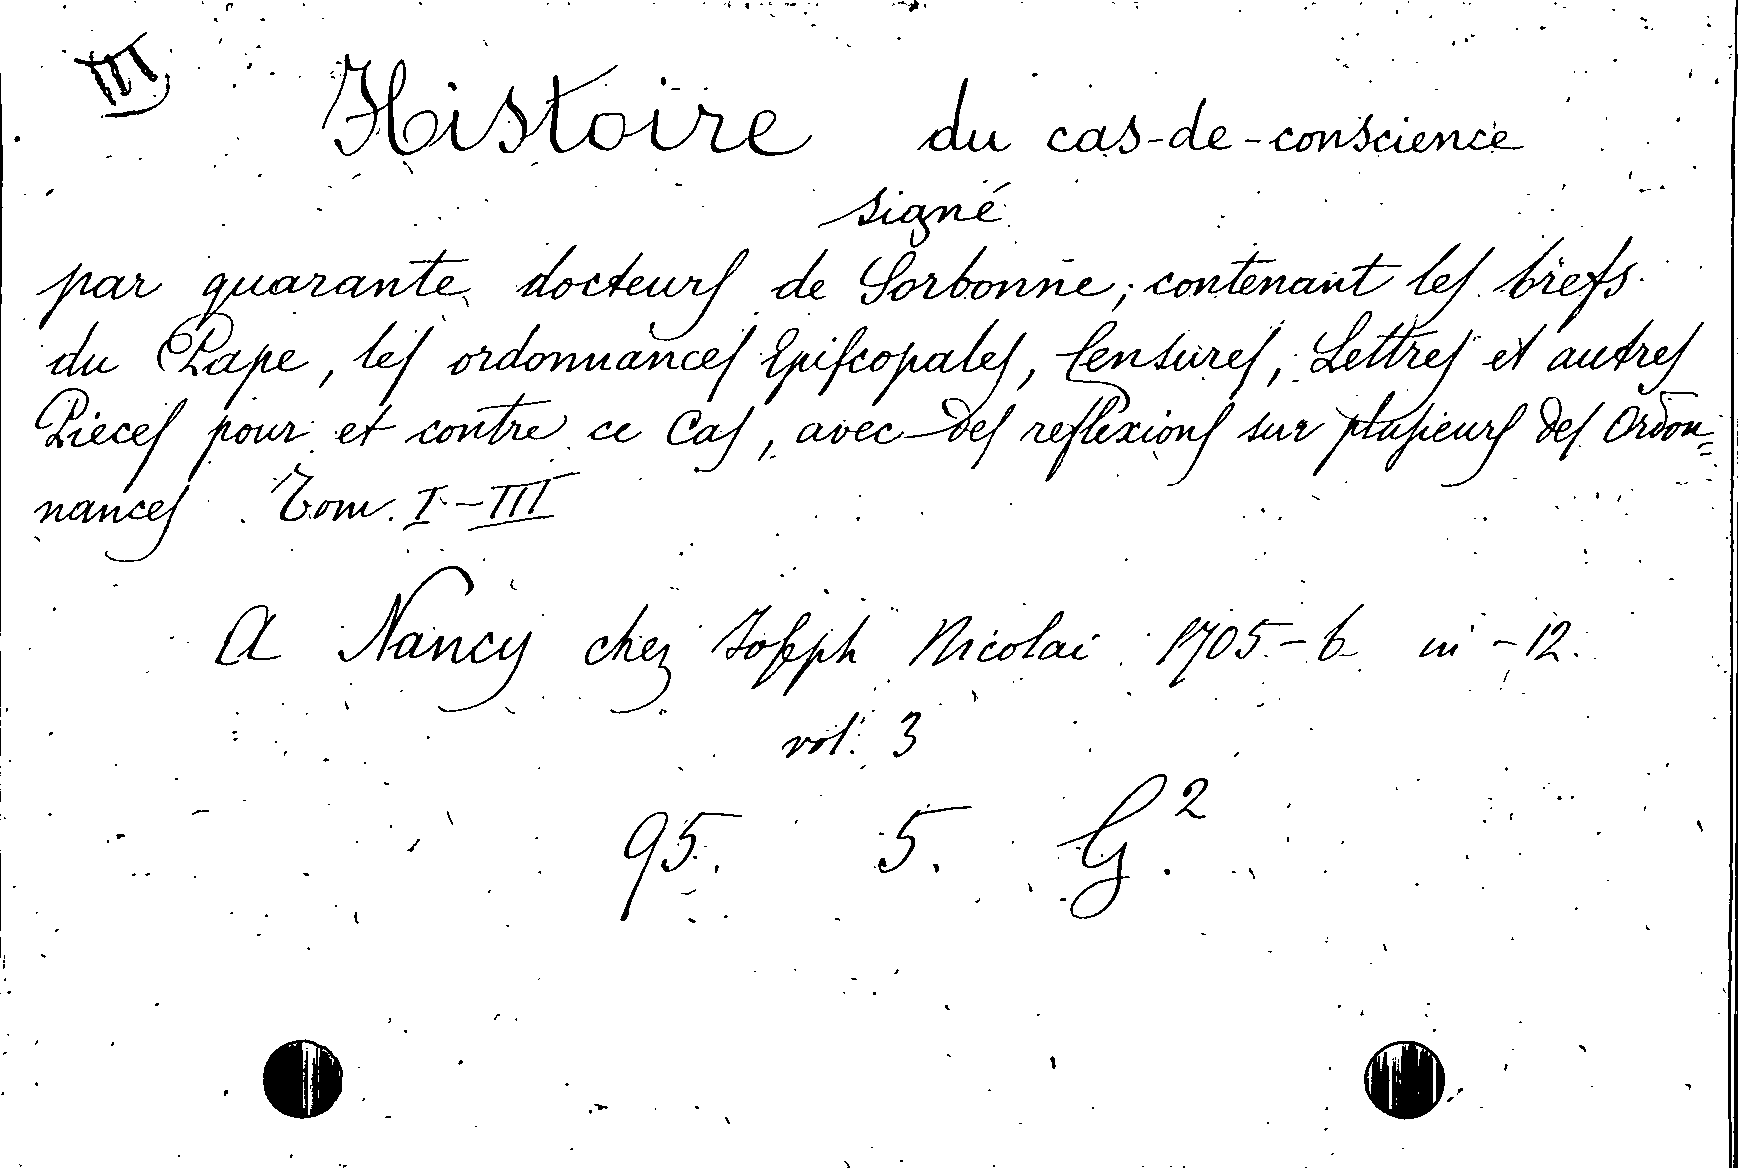 III
Histoire du cas-de-conscience
signé
par quarante docteurſ de Sorbonne; contenant leſ brefs
du Pape, leſ ordonnanceſ Epiſcopaleſ, Censureſ, Lettreſ et autreſ
Pieceſ pour et contre ce Caſ, avec deſ reflexionſ sur pluſieurſ deſ Ordon=
nanceſ. Tom. I-III
A Nancy chez Joſeph Nicolai 1705-6 in-12.
vol. 3
95. 5. G.²